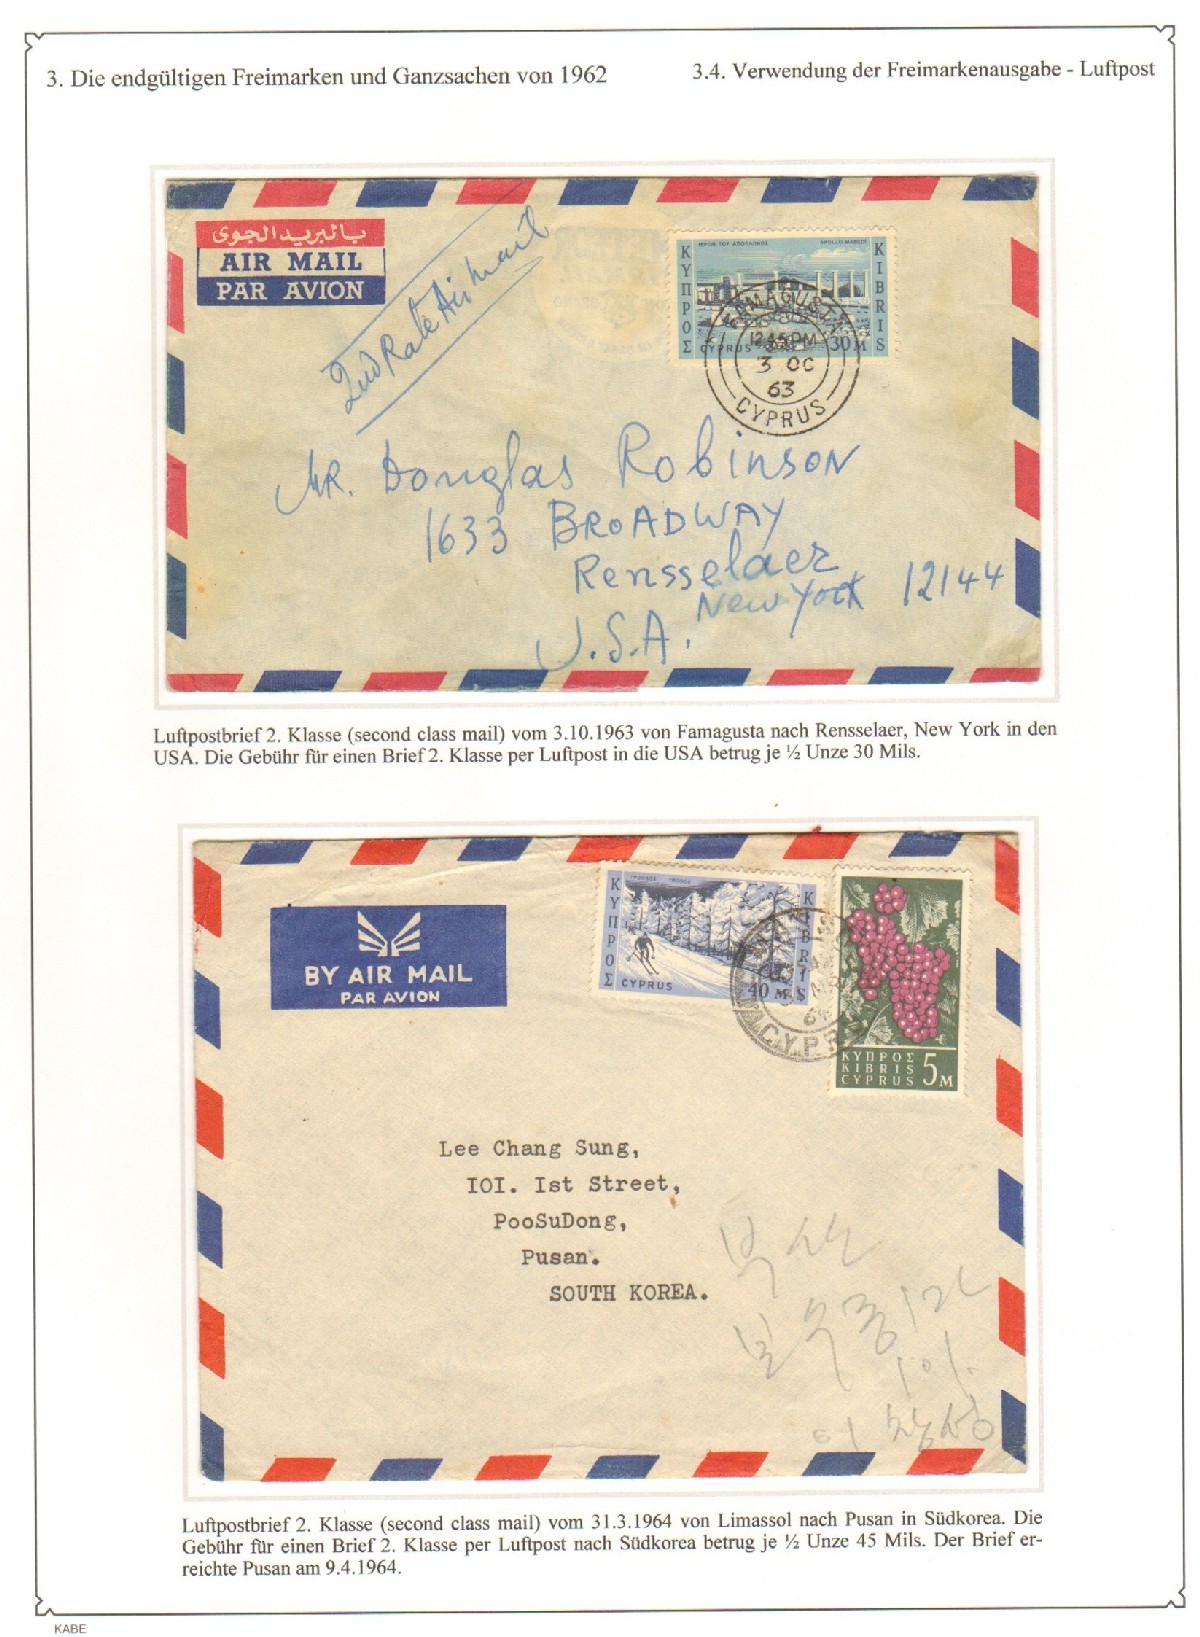 3. Die endgültigen Freimarken und Ganzsachen von 1962
3.4. Verwendung der Freimarkenausgabe - Luftpost
بالبريد الجوى
AIR MAIL
PAR AVION
2nd Rate Air Mail
ΚΥΠΡΟΣ
ΙΕΡΟΝ ΤΟΥ ΑΠΟΛΛΩΝΟΣ
KIBRIS
CYPRUS
30 M
FAMAGUSTA
12 45 PM
3 OC
63
CYPRUS
MR. Douglas Robinson
1633 BROADWAY
Rensselaer
New York 12144
U.S.A.
Luftpostbrief 2. Klasse (second class mail) vom 3.10.1963 von Famagusta nach Rensselaer, New York in den
USA. Die Gebühr für einen Brief 2. Klasse per Luftpost in die USA betrug je ½ Unze 30 Mils.
BY AIR MAIL
PAR AVION
ΚΥΠΡΟΣ
KIBRIS
CYPRUS
40 M
MR
64
CYPR
ΚΥΠΡΟΣ
KIBRIS
CYPRUS
5 M
Lee Chang Sung,
IOI. Ist Street,
PooSuDong,
Pusan.
SOUTH KOREA.
부산
보수동 1가
101
이창성
Luftpostbrief 2. Klasse (second class mail) vom 31.3.1964 von Limassol nach Pusan in Südkorea. Die
Gebühr für einen Brief 2. Klasse per Luftpost nach Südkorea betrug je ½ Unze 45 Mils. Der Brief er-
reichte Pusan am 9.4.1964.
KABE